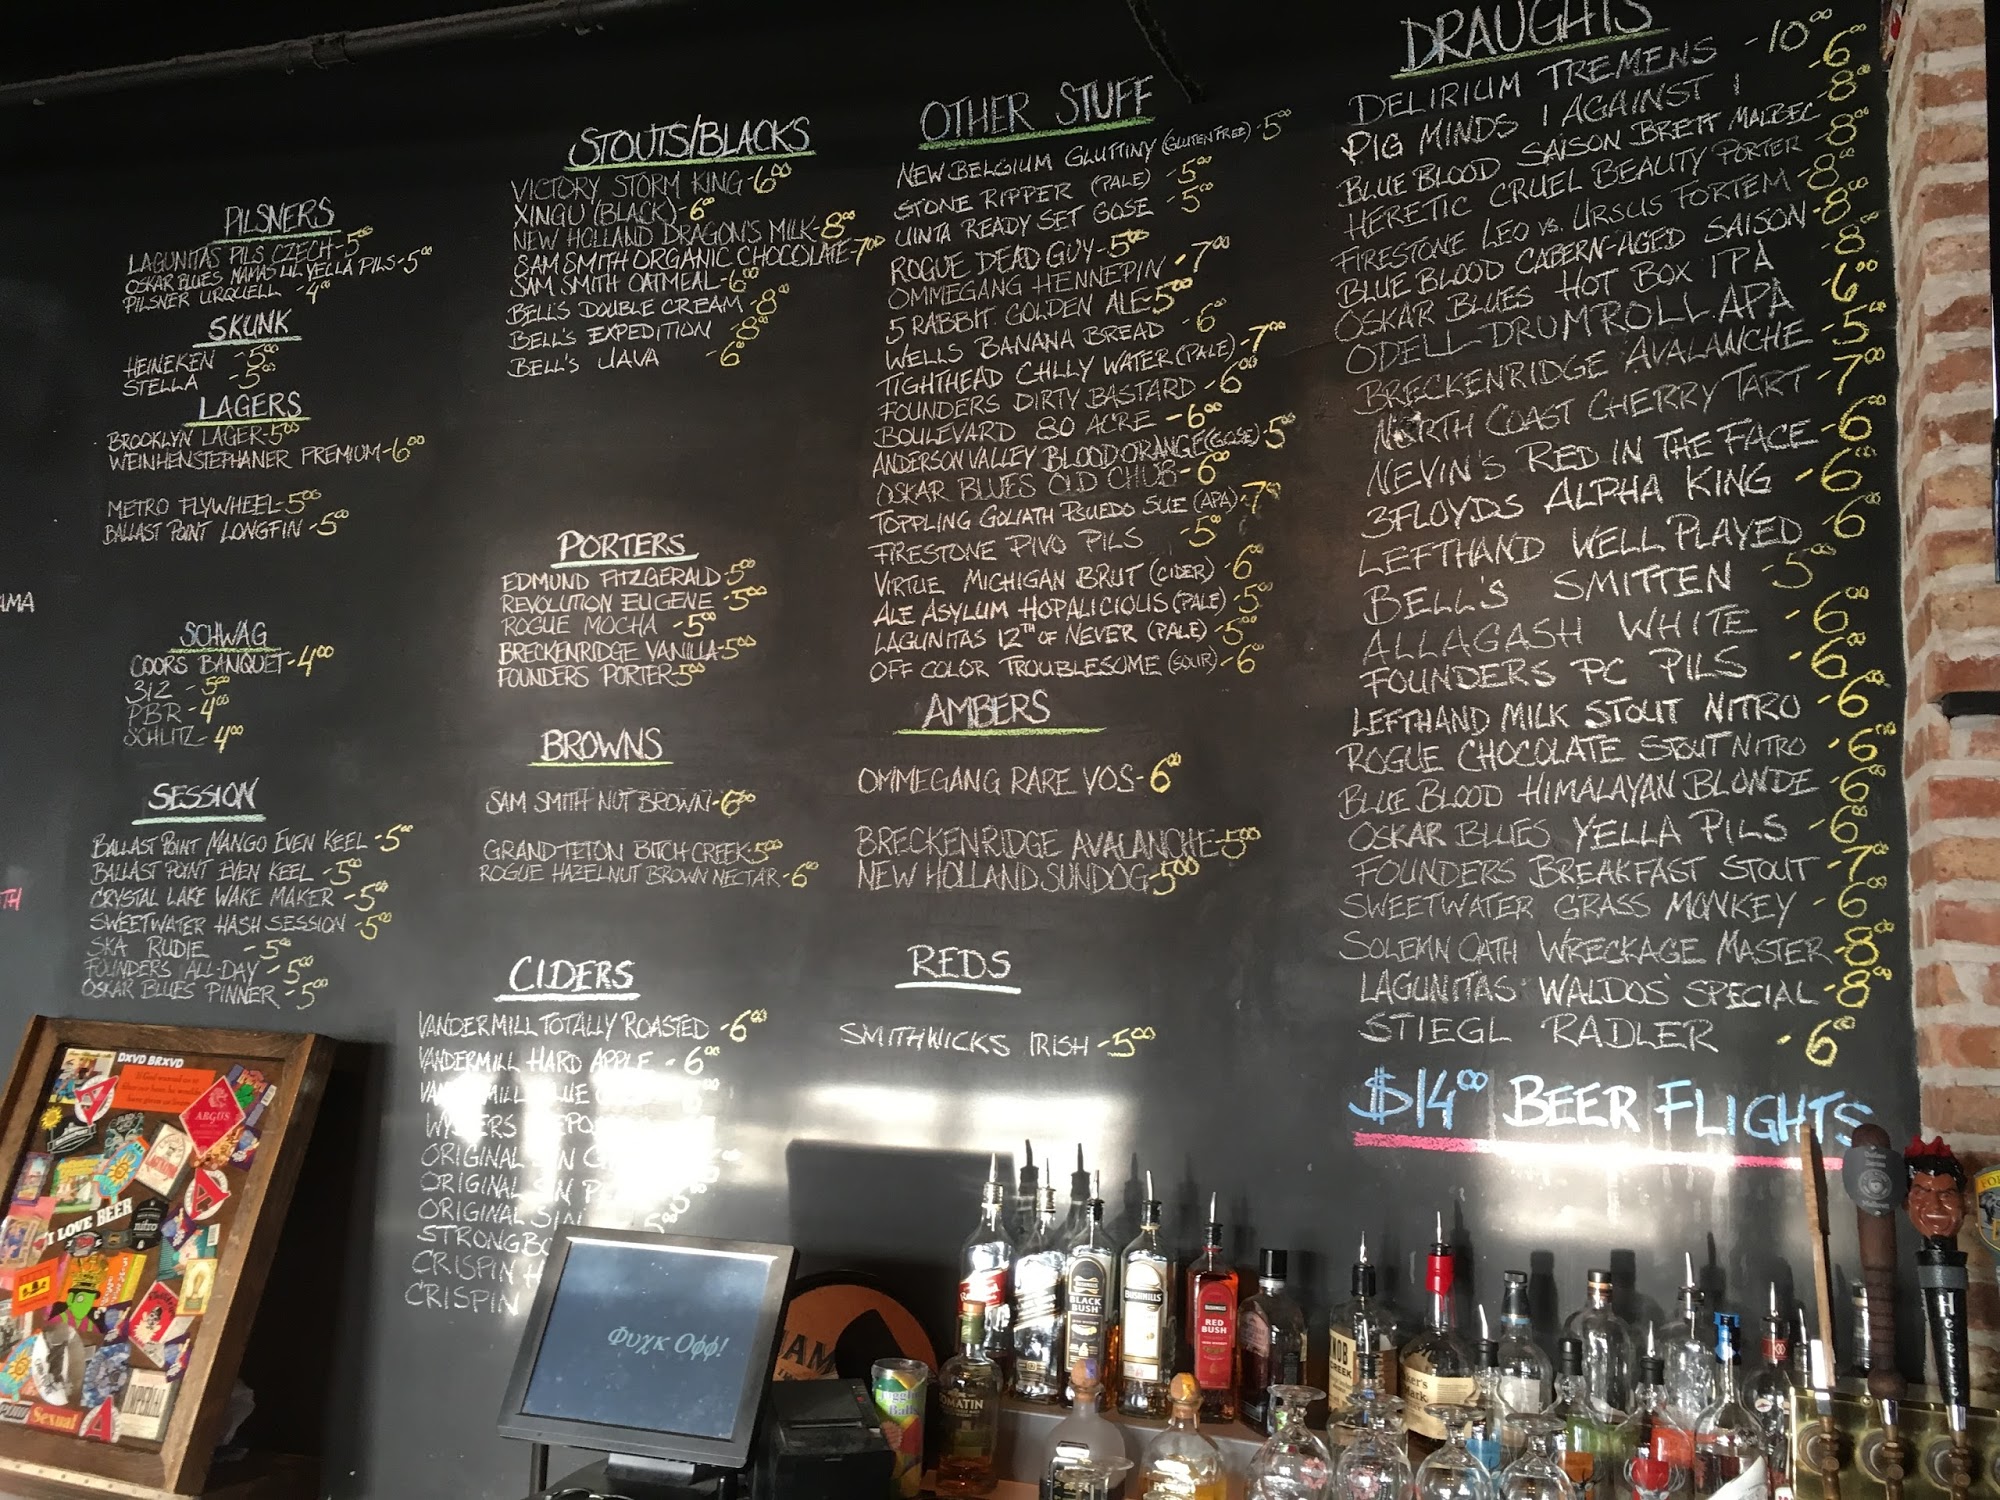 PILSNERS
LAGUNITAS PILS CZECH-5⁰⁰
OSKAR BLUES MAMAS LIL YELLA PILS-5⁰⁰
PILSNER URQUELL -4⁰⁰
SKUNK
HEINEKEN -5⁰⁰
STELLA -5⁰⁰
LAGERS
BROOKLYN LAGER-5⁰⁰
WEINHENSTEPHANER PREMIUM-6⁰⁰
METRO FLYWHEEL-5⁰⁰
BALLAST POINT LONGFIN-5⁰⁰
AMA
SCHWAG
COORS BANQUET-4⁰⁰
312 -5⁰⁰
PBR-4⁰⁰
SCHLITZ-4⁰⁰
SESSION
BALLAST POINT MANGO EVEN KEEL-5⁰⁰
BALLAST POINT EVEN KEEL-5⁰⁰
CRYSTAL LAKE WAKE MAKER-5⁰⁰
SWEETWATER HASH SESSION-5⁰⁰
SKA RUDIE -5⁰⁰
FOUNDERS ALL-DAY -5⁰⁰
OSKAR BLUES PINNER-5⁰⁰
TH
STOUTS/BLACKS
VICTORY STORM KING-6⁰⁰
XINGU (BLACK)-6⁰⁰
NEW HOLLAND DRAGON'S MILK-8⁰⁰
SAM SMITH ORGANIC CHOCOLATE-7⁰⁰
SAM SMITH OATMEAL-6⁰⁰
BELL'S DOUBLE CREAM-8⁰⁰
BELL'S EXPEDITION -8⁰⁰
BELL'S JAVA -6⁰⁰
PORTERS
EDMUND FITZGERALD-5⁰⁰
REVOLUTION EUGENE-5⁰⁰
ROGUE MOCHA -5⁰⁰
BRECKENRIDGE VANILLA-5⁰⁰
FOUNDERS PORTER-5⁰⁰
BROWNS
SAM SMITH NUT BROWN-6⁰⁰
GRAND TETON BITCH CREEK-5⁰⁰
ROGUE HAZELNUT BROWN NECTAR-6⁰⁰
CIDERS
VANDERMILL TOTALLY ROASTED -6⁰⁰
VANDERMILL HARD APPLE -6⁰⁰
ORIGINAL SIN
ORIGINAL SIN
ORIGINAL SIN
CRISPIN
CRISPIN
OTHER STUFF
NEW BELGIUM GLUTTINY (GLUTEN FREE)-5⁰⁰
STONE RIPPER (PALE) -5⁰⁰
UINTA READY SET GOSE -5⁰⁰
ROGUE DEAD GUY-5⁰⁰
OMMEGANG HENNEPIN -7⁰⁰
5 RABBIT GOLDEN ALE-5⁰⁰
WELLS BANANA BREAD -6⁰⁰
TIGHTHEAD CHLLY WATER (PALE)-7⁰⁰
FOUNDERS DIRTY BASTARD -6⁰⁰
BOULEVARD 80 ACRE -6⁰⁰
ANDERSON VALLEY BLOOD ORANGE (GOSE) 5⁰⁰
OSKAR BLUES OLD CHUB-6⁰⁰
TOPPLING GOLIATH PSUEDO SUE (APA)-7⁰⁰
FIRESTONE PIVO PILS -5⁰⁰
VIRTUE MICHIGAN BRUT (CIDER)-6⁰⁰
ALE ASYLUM HOPALICIOUS (PALE)-5⁰⁰
LAGUNITAS 12TH OF NEVER (PALE)-5⁰⁰
OFF COLOR TROUBLESOME (SOUR)-6⁰⁰
AMBERS
OMMEGANG RARE VOS-6⁰⁰
BRECKENRIDGE AVALANCHE-5⁰⁰
NEW HOLLAND SUNDOG-5⁰⁰
REDS
SMITHWICKS IRISH-5⁰⁰
DRAUGHTS
DELIRIUM TREMENS -10⁰⁰
PIG MINDS 1 AGAINST 1 -6⁰⁰
BLUE BLOOD SAISON BRETT MALBEC-8⁰⁰
HERETIC CRUEL BEAUTY PORTER -8⁰⁰
FIRESTONE LEO VS. URSUS FORTEM -8⁰⁰
BLUE BLOOD CABERN-AGED SAISON-8⁰⁰
OSKAR BLUES HOT BOX IPA -8⁰⁰
ODELL DRUMROLL APA -6⁰⁰
BRECKENRIDGE AVALANCHE -5⁰⁰
NORTH COAST CHERRY TART -7⁰⁰
NEVIN'S RED IN THE FACE-6⁰⁰
3FLOYDS ALPHA KING -6⁰⁰
LEFTHAND WELL PLAYED -6⁰⁰
BELL'S SMITTEN -5⁰⁰
ALLAGASH WHITE -6⁰⁰
FOUNDERS PC PILS -6⁰⁰
LEFTHAND MILK STOUT NITRO -6⁰⁰
ROGUE CHOCOLATE STOUT NITRO -6⁰⁰
BLUE BLOOD HIMALAYAN BLONDE -6⁰⁰
OSKAR BLUES YELLA PILS -6⁰⁰
FOUNDERS BREAKFAST STOUT -7⁰⁰
SWEETWATER GRASS MONKEY -6⁰⁰
SOLEMN OATH WRECKAGE MASTER-8⁰⁰
LAGUNITAS WALDOS' SPECIAL-8⁰⁰
STIEGL RADLER -6⁰⁰
$14⁰⁰ BEER FLIGHTS
DXVD BRXVD
ARGUS
I LOVE BEER
nitro
Sexual
Φυχκ Οφφ!
BLACK BUSH
BUSHMILLS
BUSHMILLS
RED BUSH